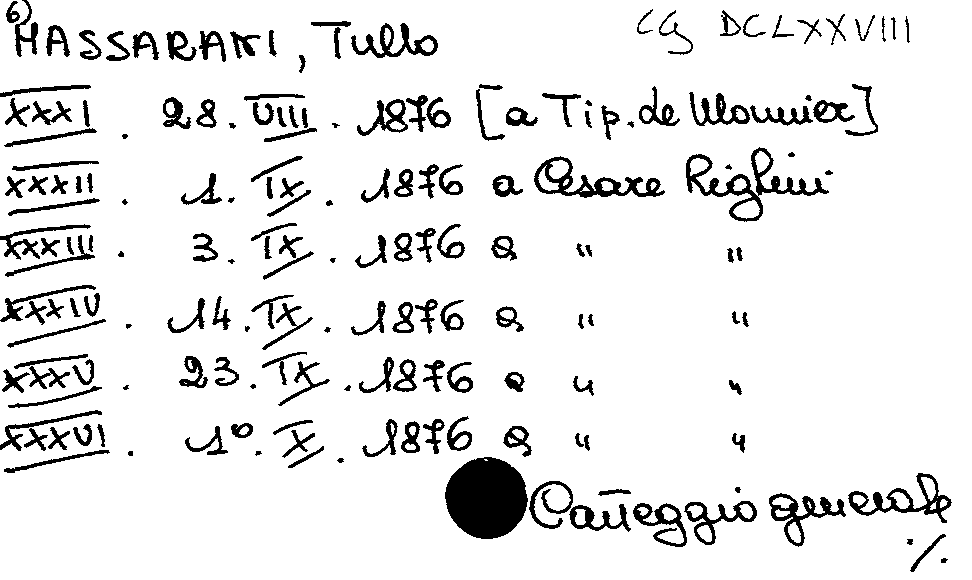 6) MASSARANI, Tullo CG DCLXXVIII
XXXI. 28. VIII. 1876 [a Tip. de Monnier]
XXXII. 1. IX. 1876 a Cesare Righini
XXXIII. 3. IX. 1876 a " "
XXXIV. 14. IX. 1876 a " "
XXXV. 23. IX. 1876 a " "
XXXVI. 1º. X. 1876 a " "
Carteggio generale
./.